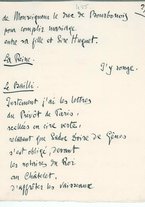 de Monseigneur le duc de Bourbonnois
pour complix mariage
entre sa fille et Sire Huguet.
La Reine.
J'y songe.
Le Bailli.
Justement j'ai les lettres
du Prévôt de Paris,
scellées en cire verte,
relatant que Salve Doire de Gênes
s'est obligé, devant
les notaires du Roi
au Châtelet,
d'affréter les vaisseaux